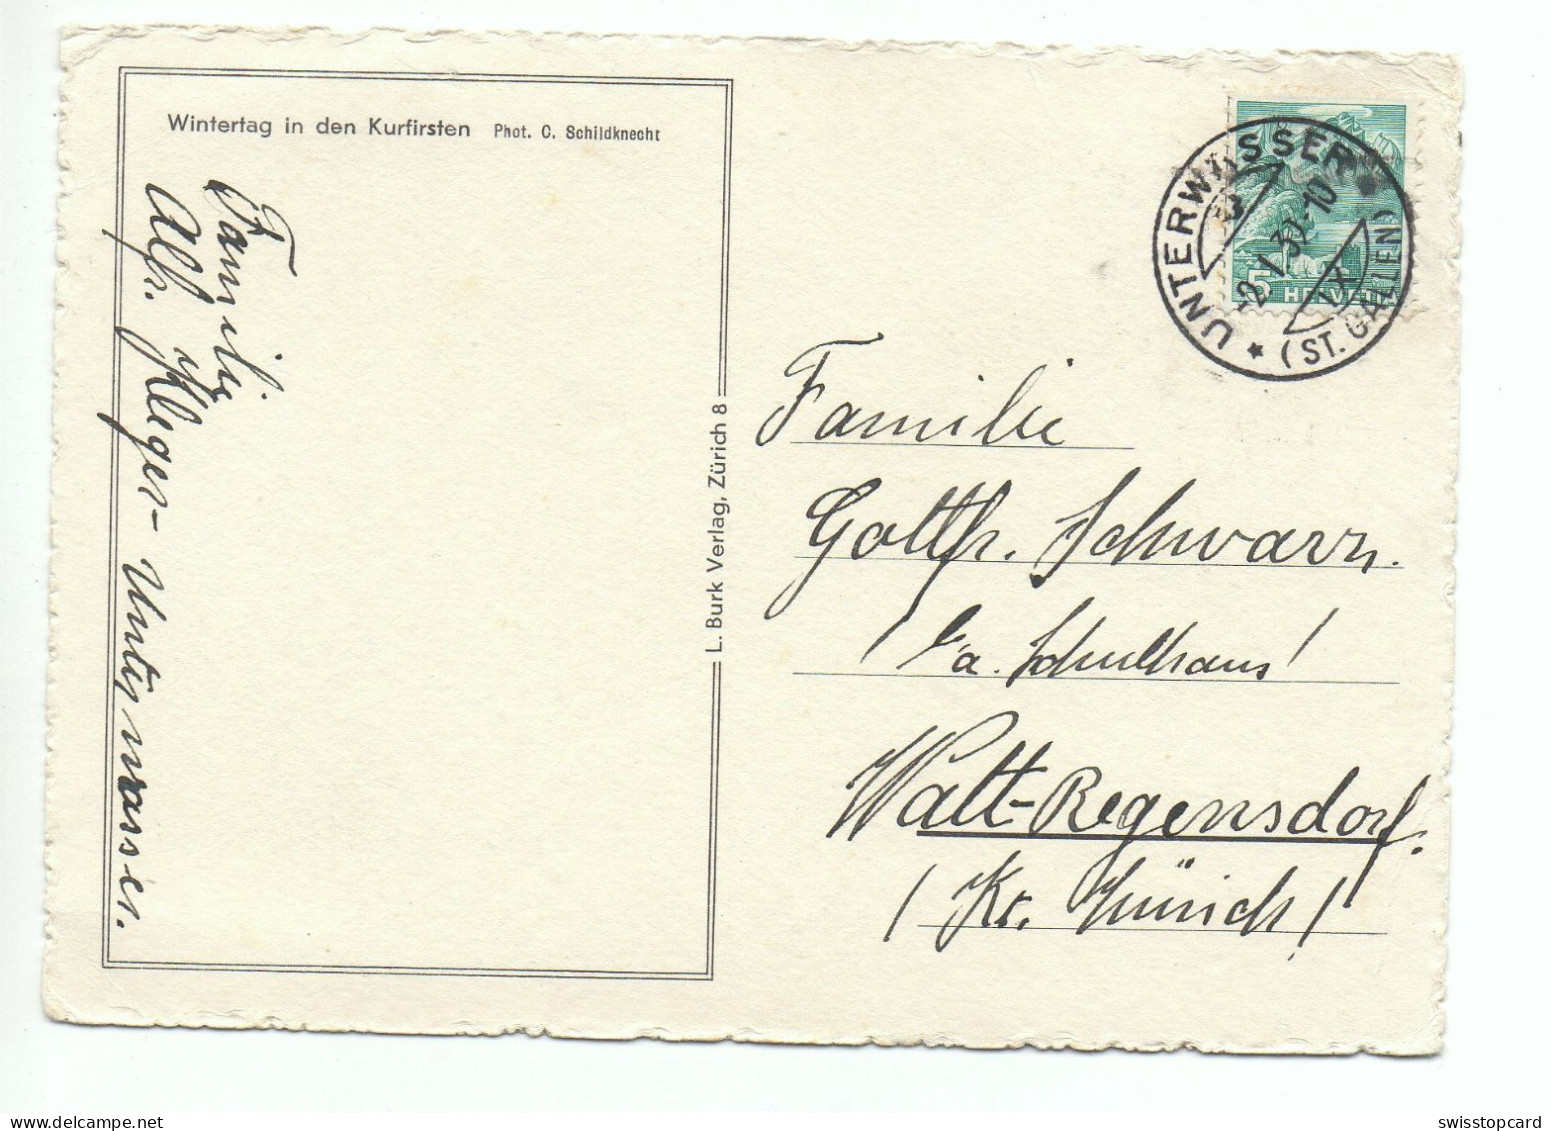 Wintertag in den Kurfirsten Phot. O. Schildknecht
Familie
Alfr. Kleger- Unterwasser.
L. Burk Verlag, Zürich 8
UNTERWASSER
(ST. GALLEN)
IX
5 HELVETIA
Familie
Gottfr. Schwarz.
( z. a. Schulhaus )
Watt-Regensdorf.
( Kt. Zürich )
swisstopcard